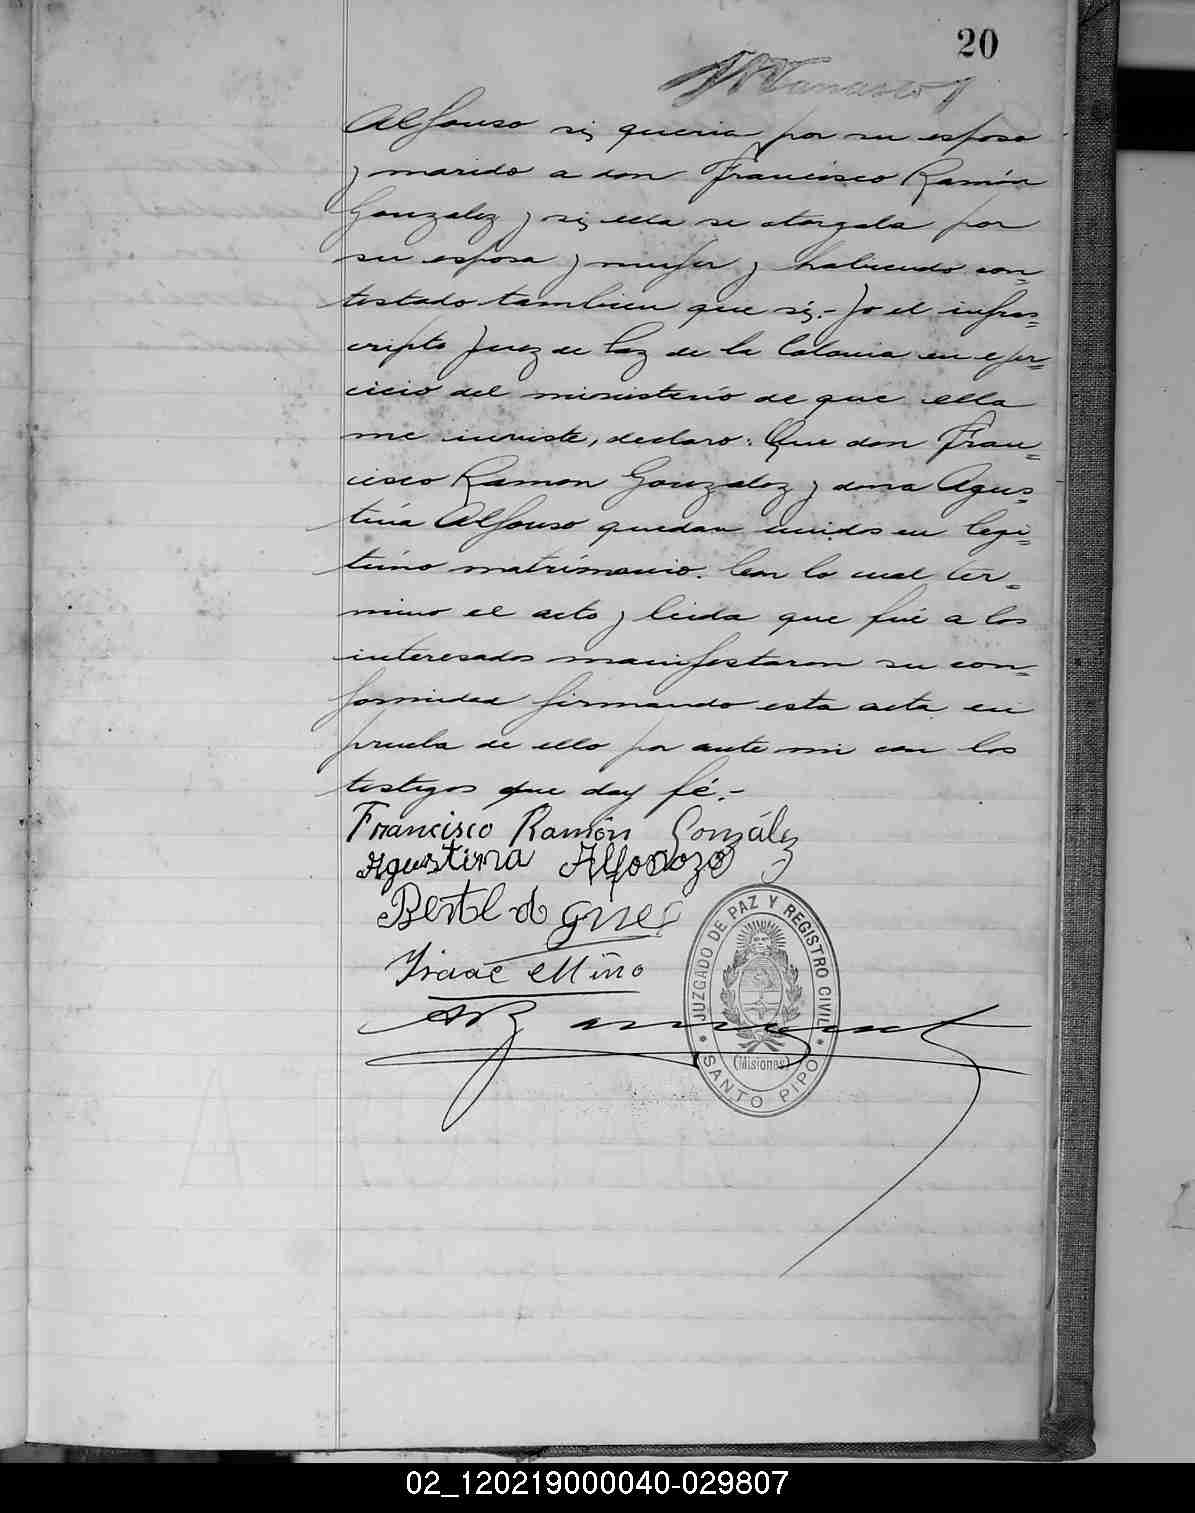 20
Alfonso si, queria por su esposo
y marido a don Francisco Ramón
Gonzalez y si, ella se otorgaba por
su esposa y mujer y habiendo con=
testado tambien que si.- Yo el infras=
cripto Juez de Paz de la Colonia en ejer=
cicio del ministerio de que ella
me inviste, declaro: Que don Fran=
cisco Ramon Gonzalez y dona Agus=
tina Alfonso quedan unidos en legi=
timo matrimonio. Con lo cual ter=
mino el acto y leida que fué a los
interesados manifestaron su con=
formidad firmando esta acta en
prueba de ello por ante mi con los
testigos que doy fé.-
Francisco Ramón González
Agustina
Isaac Miño
JUZGADO DE PAZ Y REGISTRO CIVIL
(Misiones)
SANTO PIPO
02_120219000040-029807